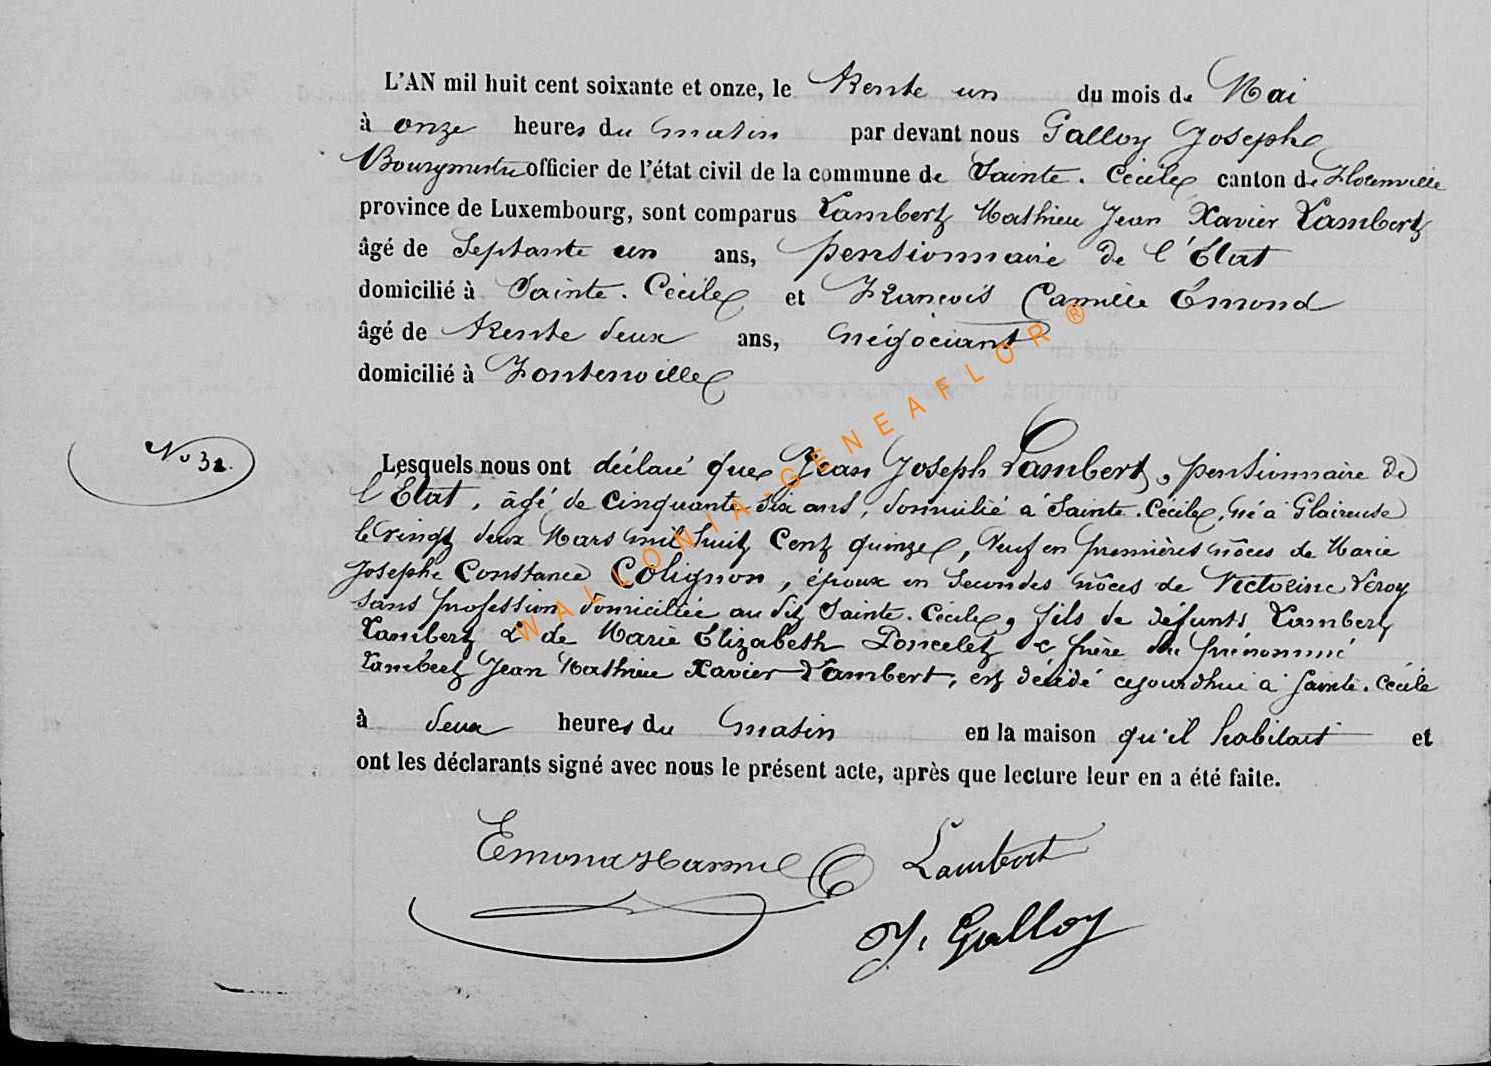 L'AN mil huit cent soixante et onze, le Trente un du mois de Mai
à onze heures du matin par devant nous Galloy Joseph
Bourgmestre officier de l'état civil de la commune de Sainte. Cécile canton de Florenville
province de Luxembourg, sont comparus Lambert Mathieu Jean Xavier Lambert
âgé de Septante un ans, pensionnaire de l'État
domicilié à Sainte. Cécile et François Camille Emond
âgé de Trente deux ans, négociant
domicilié à Fontenoille
No 32.
Lesquels nous ont déclaré que Jean Joseph Lambert, pensionnaire de
l'État, âgé de cinquante six ans, domicilié à Sainte. Cécile, né à Glaireuse
le vingt deux Mars mil huit Cent quinze, Veuf en premières nôces de Marie
Josephe Constance Colignon, époux en secondes nôces de Victorine Leroy
sans profession domiciliée au dit Sainte. Cécile, fils de défunts Lambert
Lambert & de Marie Elizabeth Poncelet & frère du prénommé
Lambert Jean Mathieu Xavier Lambert, est décédé cejourdhui à Sainte. Cécile
à deux heures du matin en la maison qu'il habitait et
ont les déclarants signé avec nous le présent acte, après que lecture leur en a été faite.
Emond Lambert
J. Galloy
WALLONIA-GENEAFLOR®